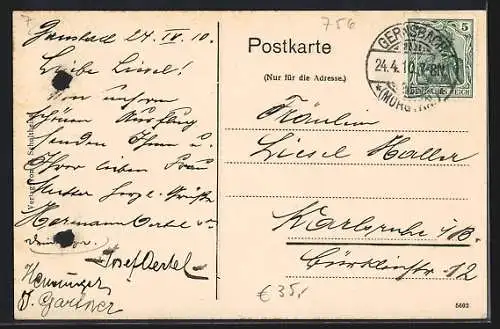 7
756
24. IV. 10.
Liebe Liesel!
Von unserm
schönen Ausflug
senden Ihnen u.
Ihrer lieben Frau
Mutter herzl. Grüße
Hermann Oertel
Josef Oertel
Henninger
J. Gärtner
Postkarte
(Nur für die Adresse.)
GERNSBACH
24.4.10.
(MURGTHAL)
5
DEUTSCHES REICH
Fräulein
Liesel Haller
Karlsruhe i/B.
12
€ 35,-
5603